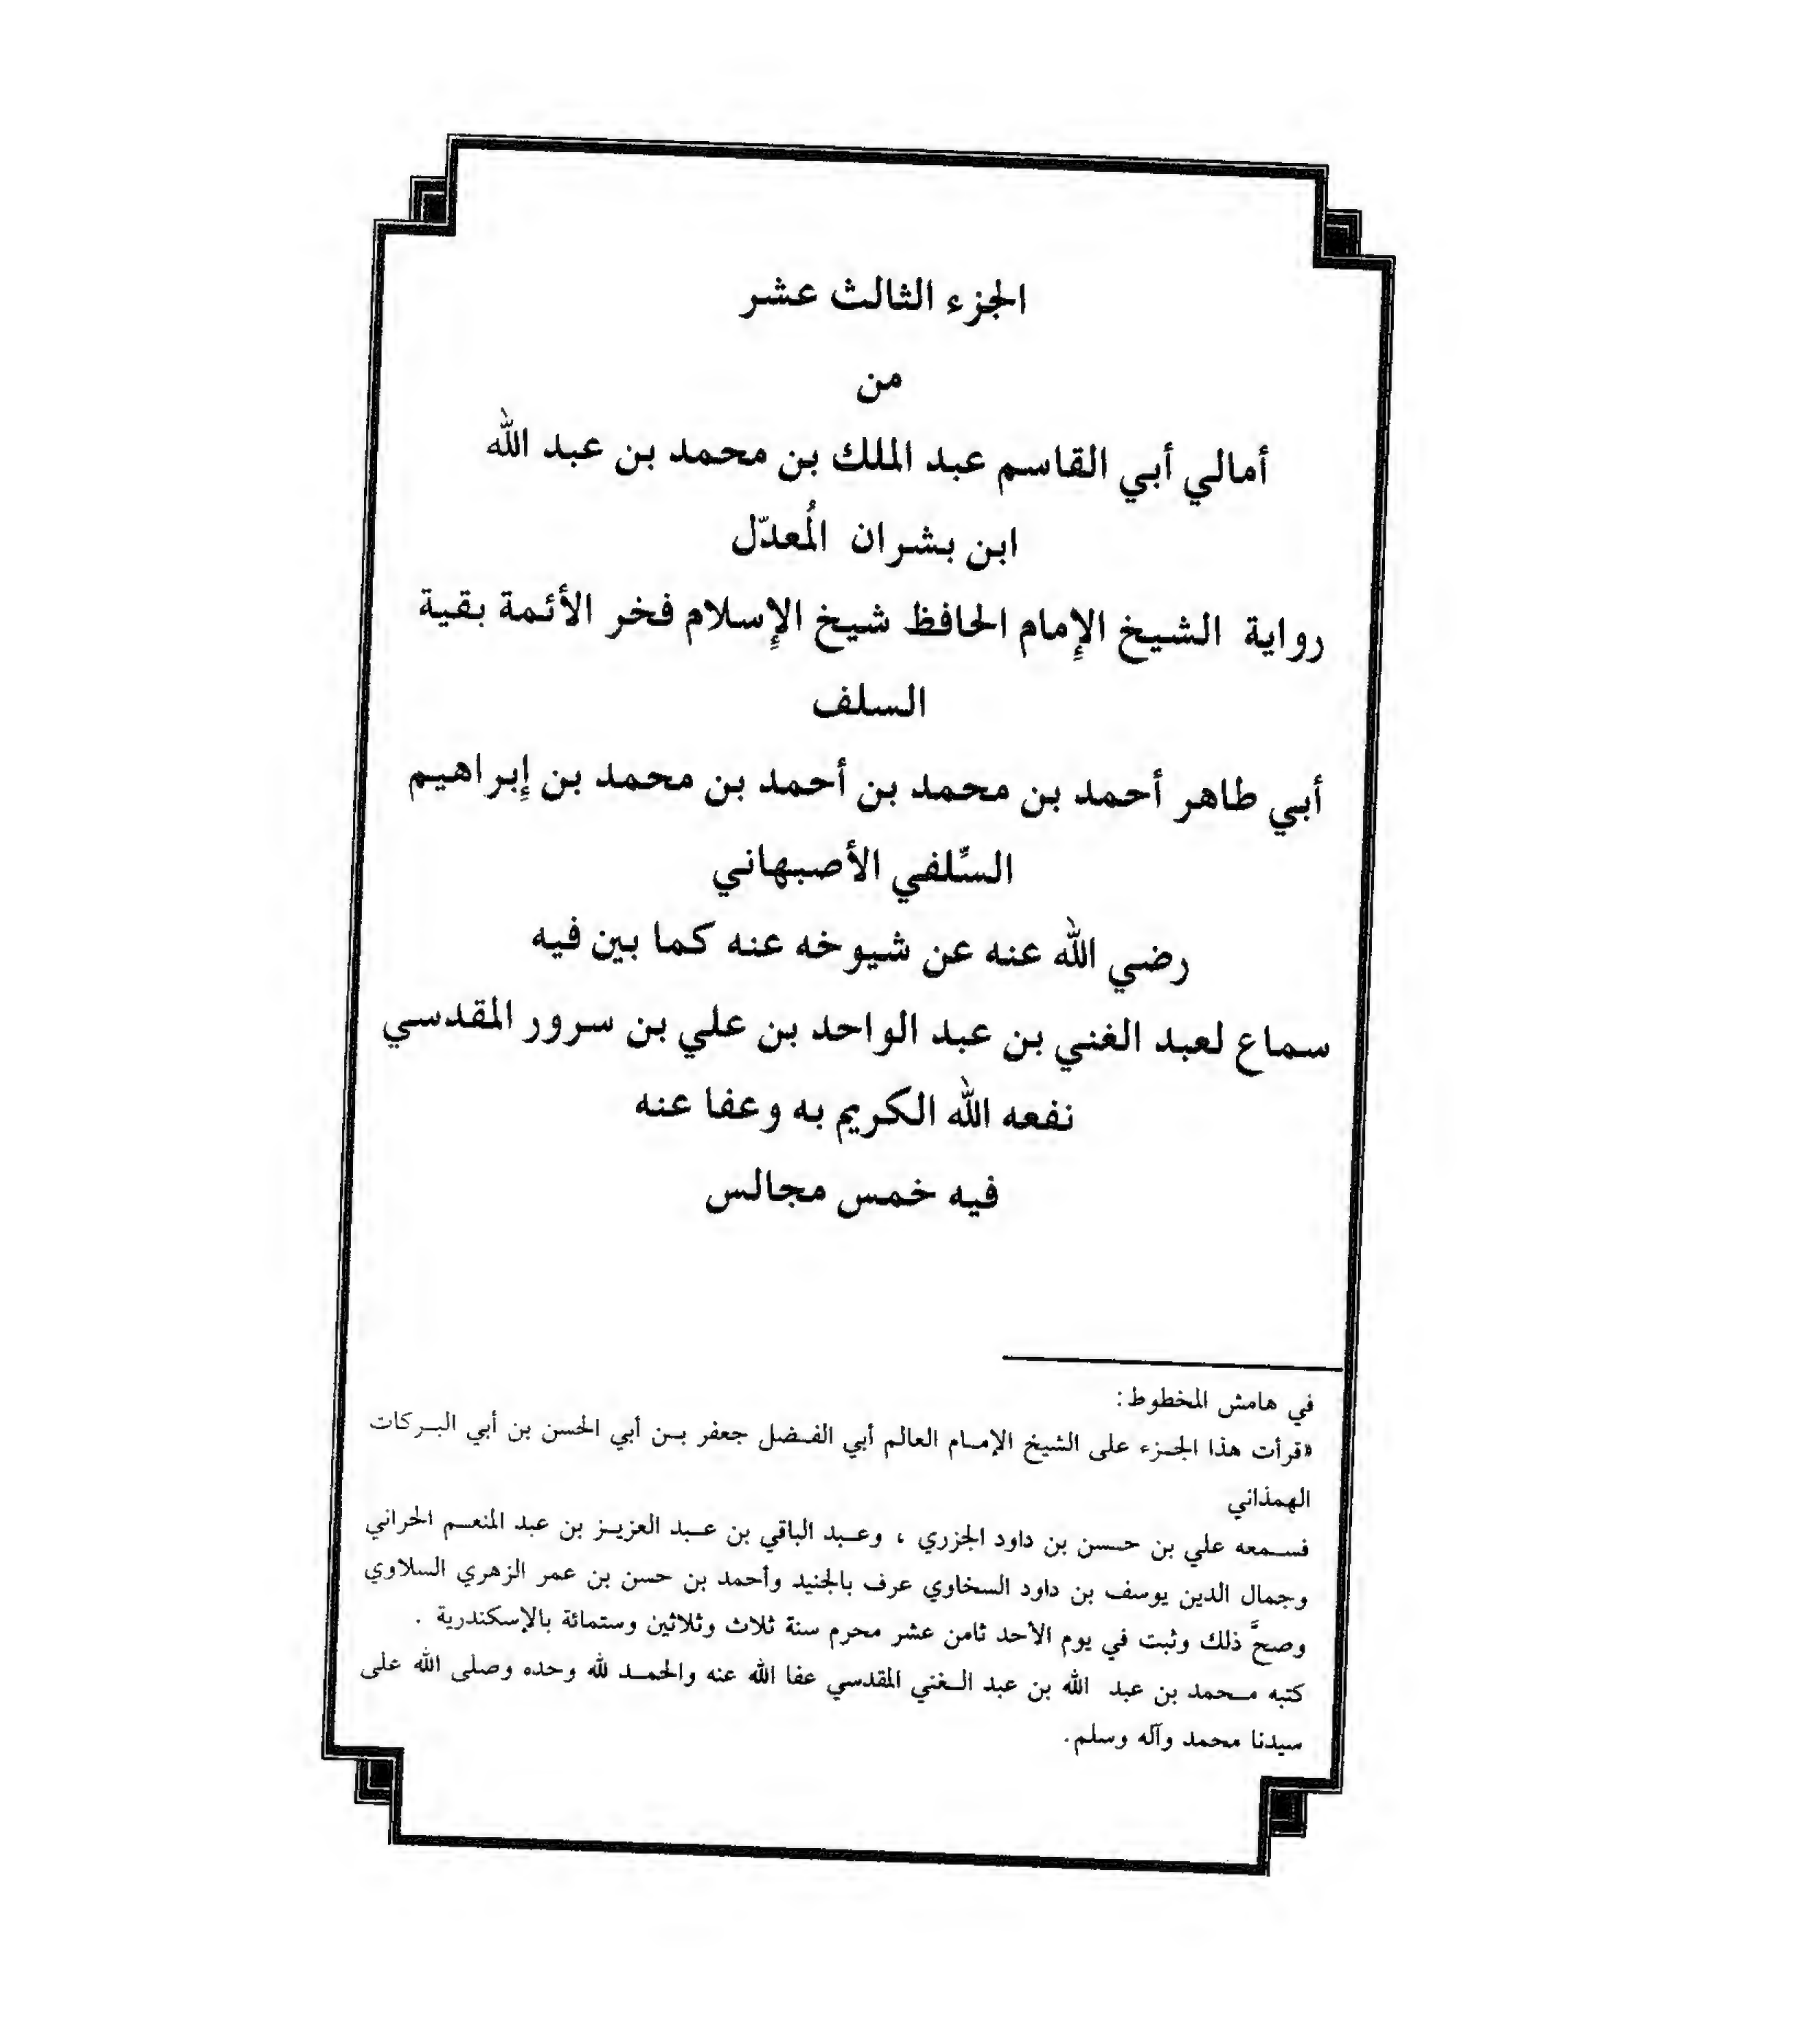 الجزء الثالث عشر
من
أمالي أبي القاسم عبد الملك بن محمد بن عبد الله
ابن بشران المُعدّل
رواية الشيخ الإمام الحافظ شيخ الإسلام فخر الأئمة بقية
السلف
أبي طاهر أحمد بن محمد بن أحمد بن محمد بن إبراهيم
السِّلفي الأصبهاني
رضي الله عنه عن شيوخه عنه كما بين فيه
سماع لعبد الغني بن عبد الواحد بن علي بن سرور المقدسي
نفعه الله الكريم به وعفا عنه
فيه خمس مجالس
في هامش المخطوط:
«قرأت هذا الجزء على الشيخ الإمام العالم أبي الفضل جعفر بن أبي الحسن بن أبي البركات
الهمذاني
فسمعه علي بن حسن بن داود الجزري ، وعبد الباقي بن عبد العزيز بن عبد المنعم الحراني
وجمال الدين يوسف بن داود السخاوي عرف بالجنيد وأحمد بن حسن بن عمر الزهري السلاوي
وصحَّ ذلك وثبت في يوم الأحد ثامن عشر محرم سنة ثلاث وثلاثين وستمائة بالإسكندرية .
كتبه محمد بن عبد الله بن عبد الغني المقدسي عفا الله عنه والحمد لله وحده وصلى الله على
سيدنا محمد وآله وسلم.